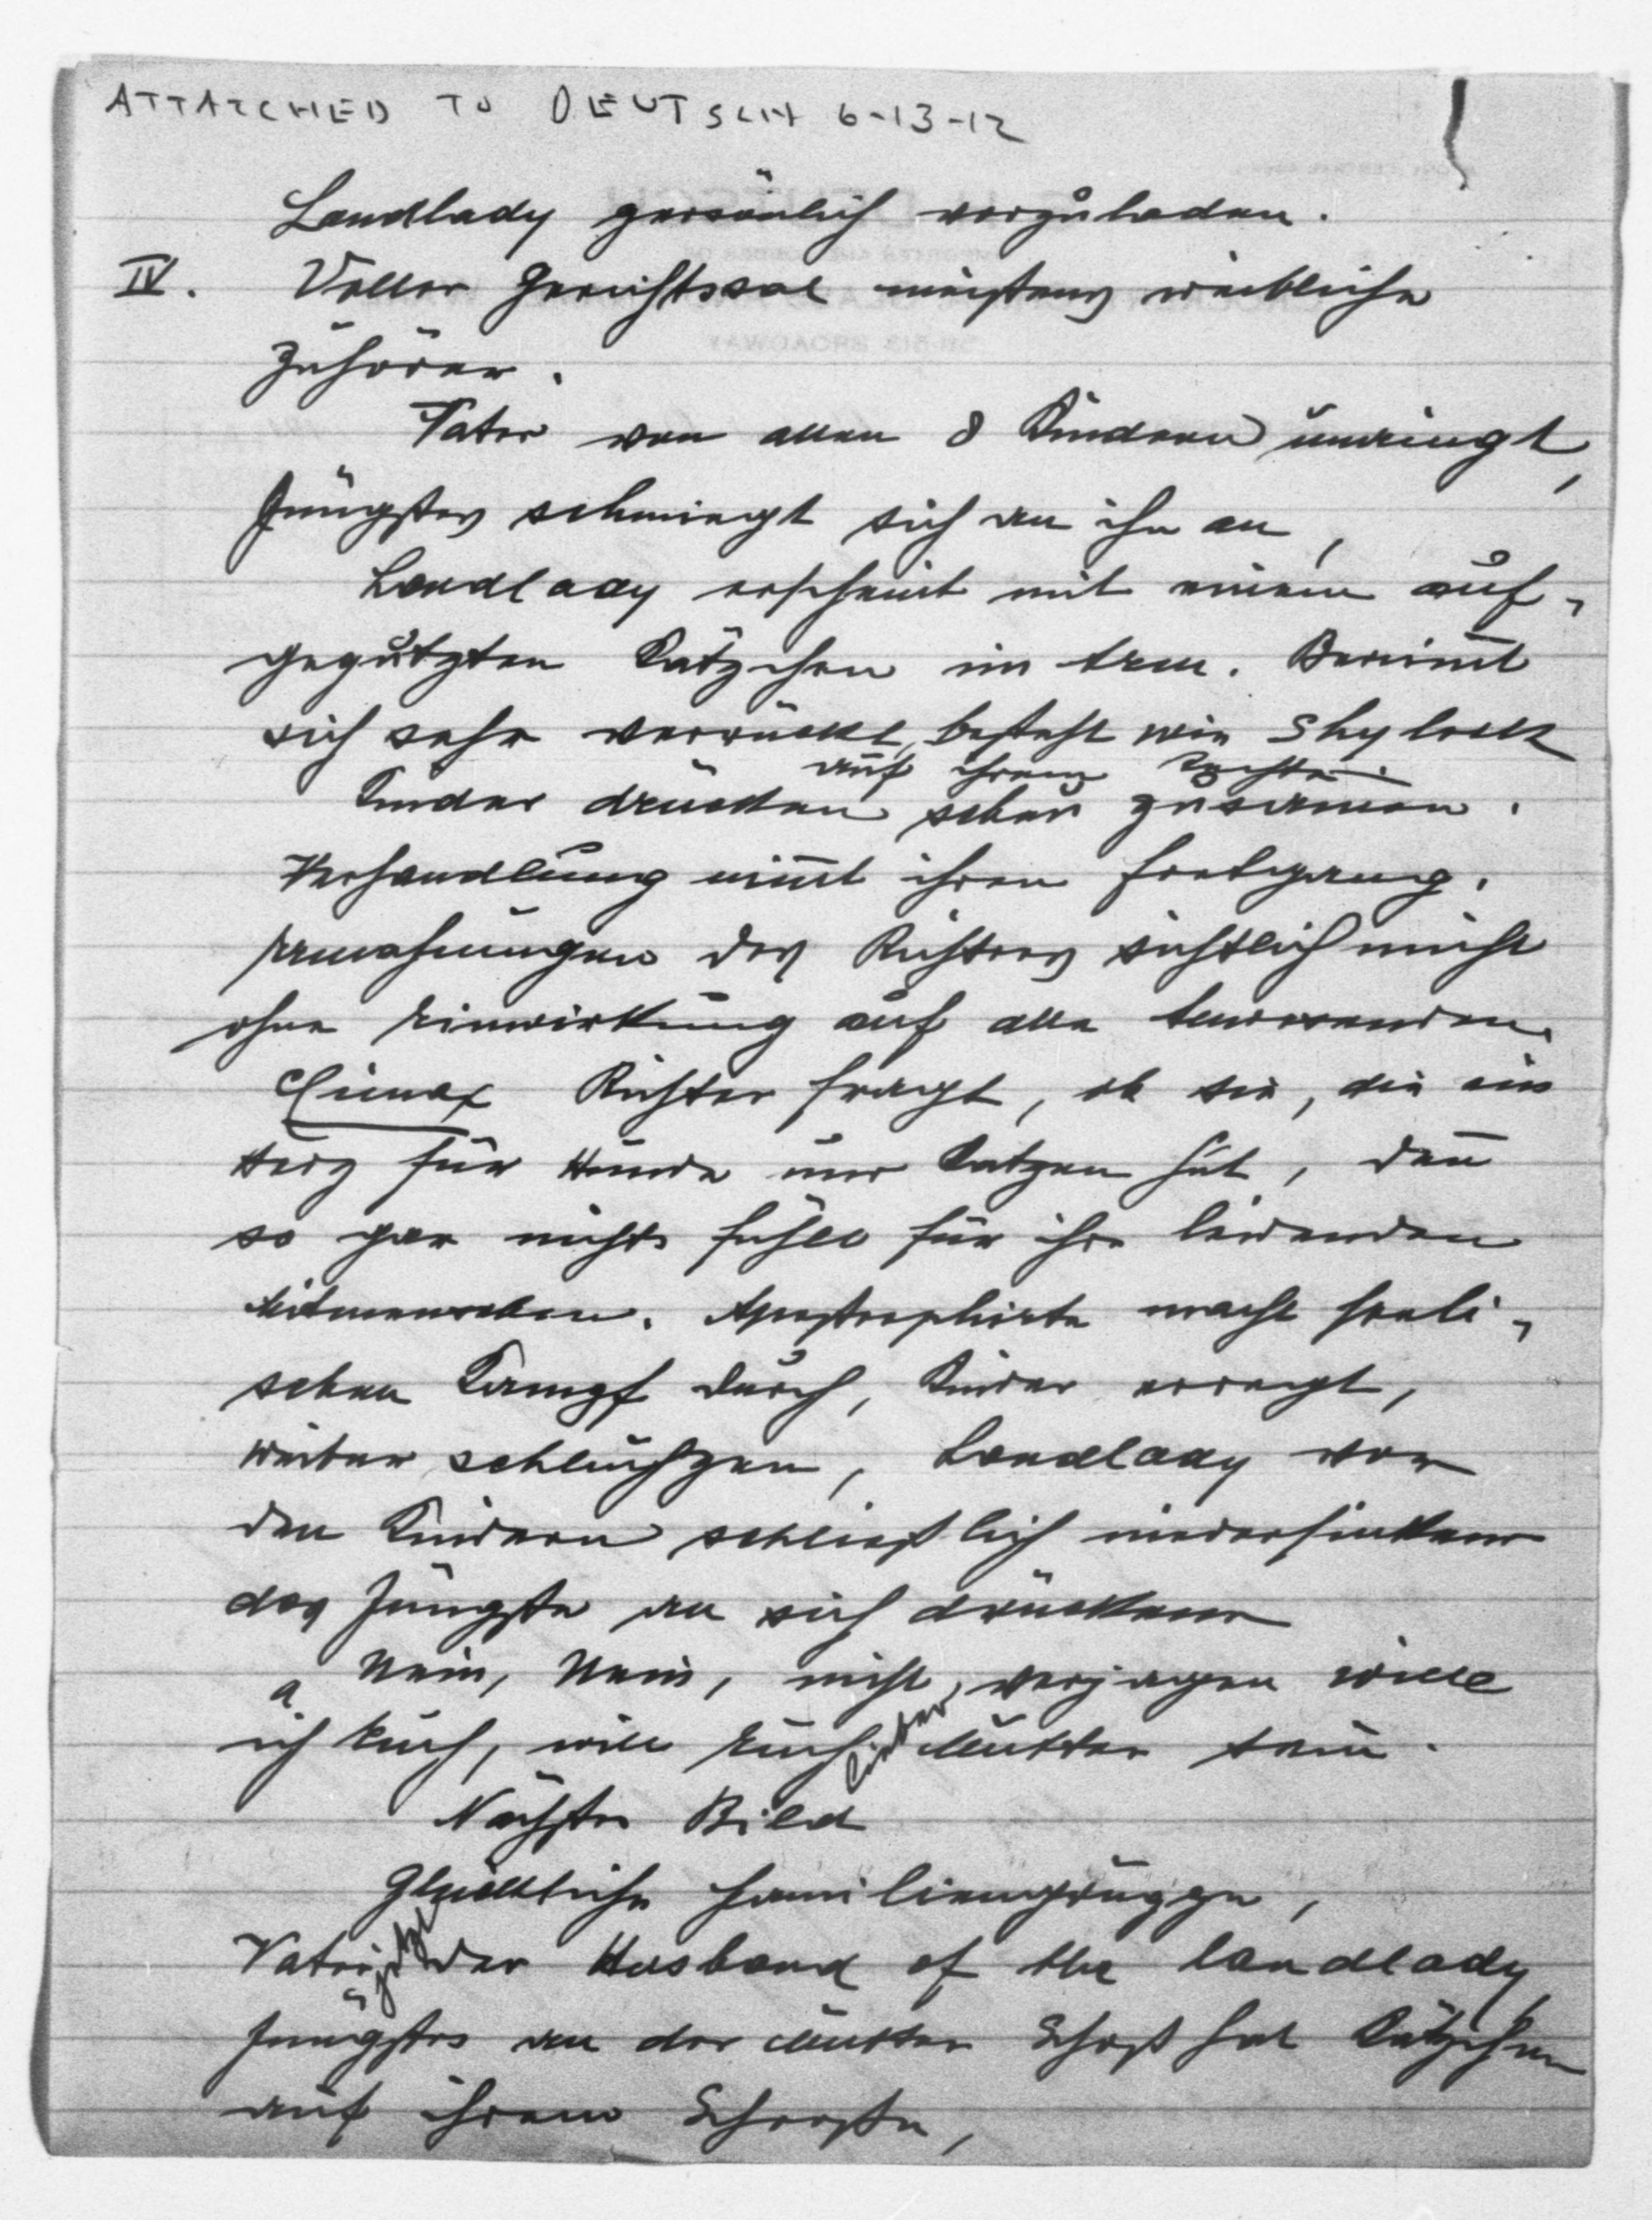 ATTATCHED TO DEUTSCH 6-13-12
Landlady persönlich vorzuladen.
IV. Voller Gerichtssal meistens weibliche
Zuhörer.
Vater von allen 8 Kindern umringt,
Jüngstes schmiegt sich an ihn an,
Landlady erscheint mit einem auf-
geputzten Kätzchen im Arm. Benimt
sich sehr verrückt, besteht wie Shylock
auf ihrem Rechte.
Kinder drücken scheu zusamen.
Verhandlung nimt ihren Fortgang.
Ermahnungen des Richters sichtlich nicht
ohne Einwirkung auf alle Anwesenden.
Climax Richter fragt, ob sie, die ein
Herz für Hunde und Katzen hat, denn
so gar nichts fühle für ihre leidenden
Mitmenschen. Apostrophirte macht seeli-
schen Kampf durch, Kinder erregt,
Weiber schluchzen, Landlady vor
den Kindern schließlich niedersinkend
das Jüngste an sich drückend
" Nein, Nein, nicht verjagen will
ich Euch, will Euch lieber Mutter sein.
Nächstes Bild
Glückliche Familiengruppe,
Vater jetzt der Husband of the landlady
Jüngstes an der Mutter Schoß hat Kätzchen
auf ihrem Schooße,